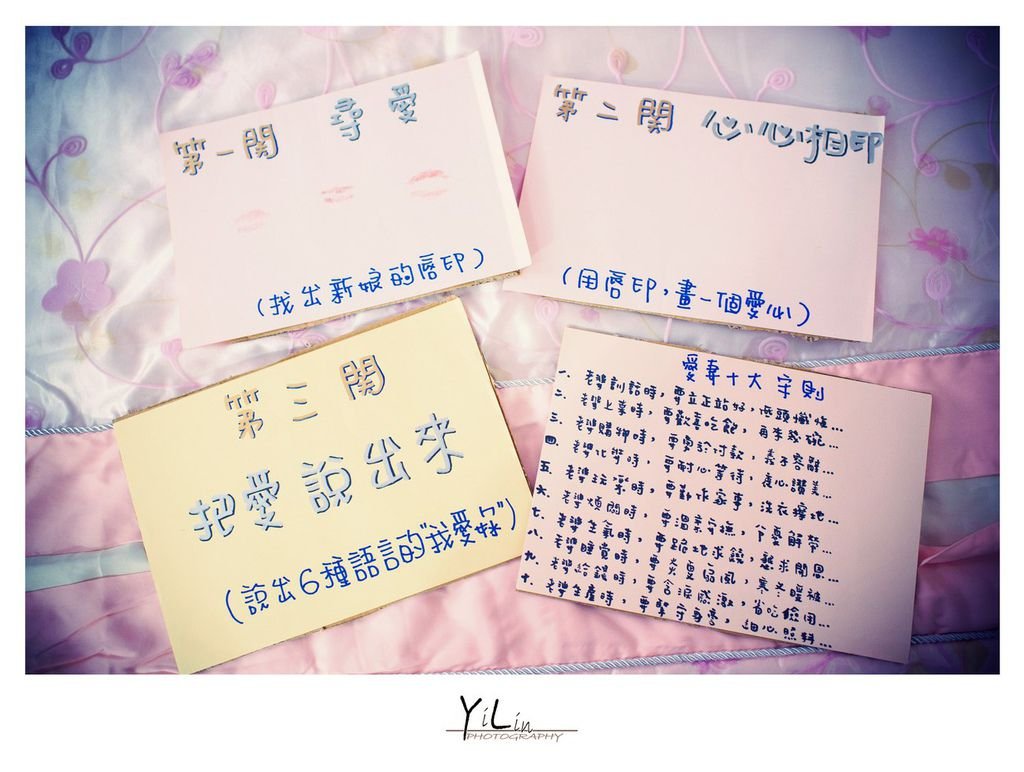 第一關 尋愛
(找出新娘的唇印)
第二關 心心相印
(用唇印,畫一個愛心)
第三關
把愛說出來
(說出6種語言的"我愛妳")
愛妻十大守則
一、老婆訓話時,要立正站好,低頭懺悔...
二、老婆上菜時,要歡喜吃飽,再來幾碗...
三、老婆購物時,要勇於付款,義不容辭...
四、老婆化學時,要耐心等待,產心讚美...
五、老婆玩樂時,要勤作家事,洗衣擦地...
六、老婆煩悶時,要溫柔安撫,分憂解勞...
七、老婆生氣時,要跪地求饒,懇求開恩...
八、老婆睡覺時,要炎夏扇風,寒冬暖被...
九、老婆給錢時,要含淚感激,省吃儉用...
十、老婆生產時,要緊守身旁,細心照料...
YiLin
PHOTOGRAPHY